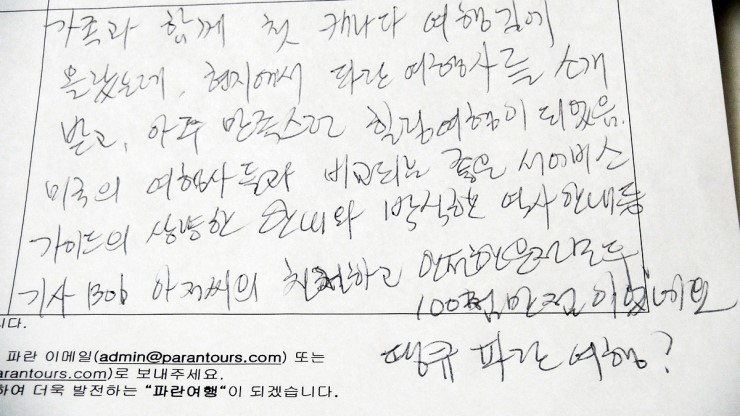 가족과 함께 첫 캐나다 여행길에
올랐는데, 현지에서 파란 여행사를 소개
받고, 아주 만족스런 힐링여행이 되었음.
미국의 여행사들과 비교되는 좋은 서비스
가이드의 상냥한 안내와 박식한 역사안내등
기사 Bob 아저씨의 친절하고 안전한운전모두
100점 만점 이었네요
땡큐 파란 여행?
니다.
파란 이메일(admin@parantours.com) 또는
arantours.com)로 보내주세요.
하여 더욱 발전하는 "파란여행"이 되겠습니다.